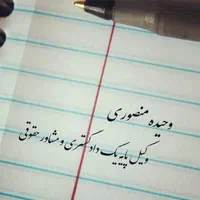 وحیده منصوری
وکیل پایه یک دادگستری و مشاور حقوقی